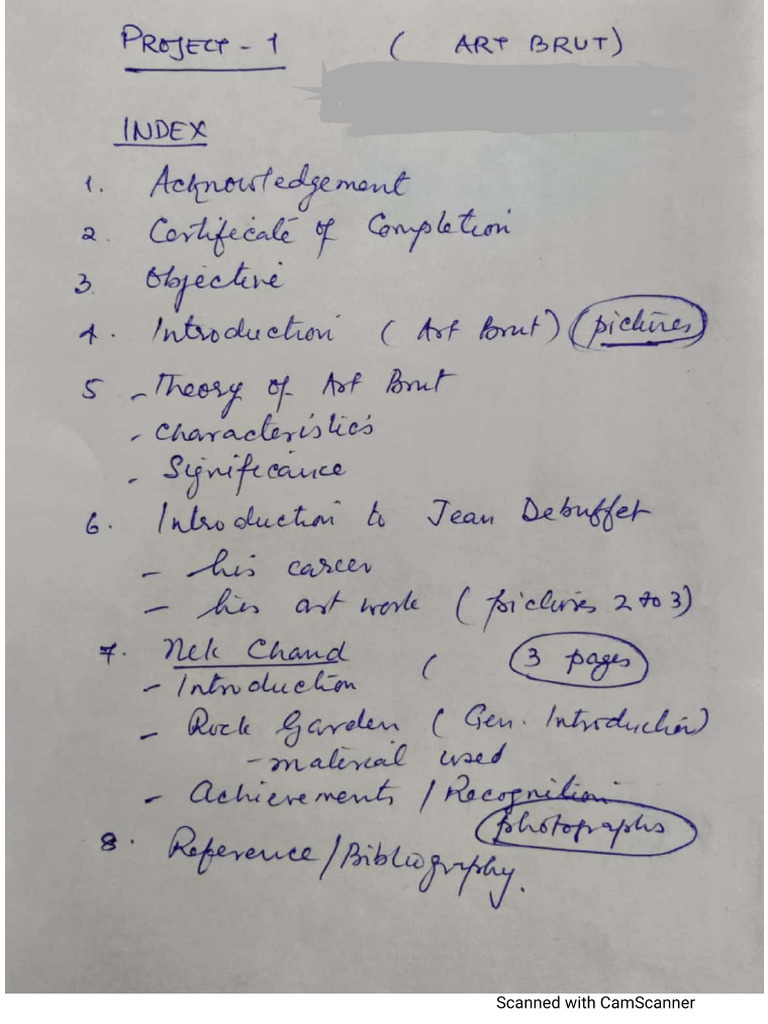 PROJECT - 1 ( ART BRUT)
INDEX
1. Acknowledgement
2. Certificate of Completion
3. Objective
4. Introduction ( Art Brut) (pictures)
5 - Theory of Art Brut
- Characteristics
- Significance
6. Introduction to Jean Debuffet
- his career
- his art work ( pictures 2 to 3)
7. Nek Chand ( 3 pages
- Introduction
- Rock Garden ( Gen. Introduction)
- material used
- Achievements / Recognition
photographs
8. Reference/Bibliography.
Scanned with CamScanner